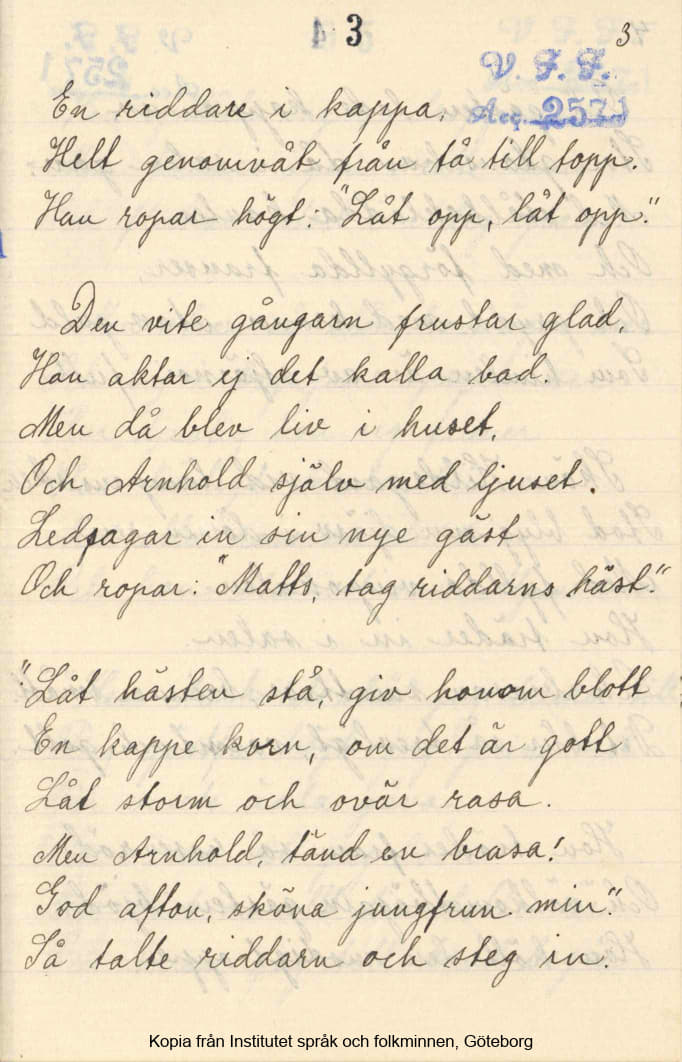 3
3
V. F. F.
Acc. 2571
En riddare i kappa.
Helt genomvåt från tå till topp.
Han ropar högt: "Låt opp, låt opp".
Den vite gångarn frustar glad,
Han aktar ej det kalla bad.
Men då blev liv i huset,
Och Arnhold själv med ljuset.
Ledsagar in sin nye gäst
Och ropar: "Matts, tag riddarns häst."
"Låt hästen stå, giv honom blott
En kappe korn, om det är gott
Låt storm och ovär rasa.
Men Arnhold, tänd en brasa!
God afton, sköna jungfrun min".
Så talte riddarn och steg in.
Kopia från Institutet språk och folkminnen, Göteborg